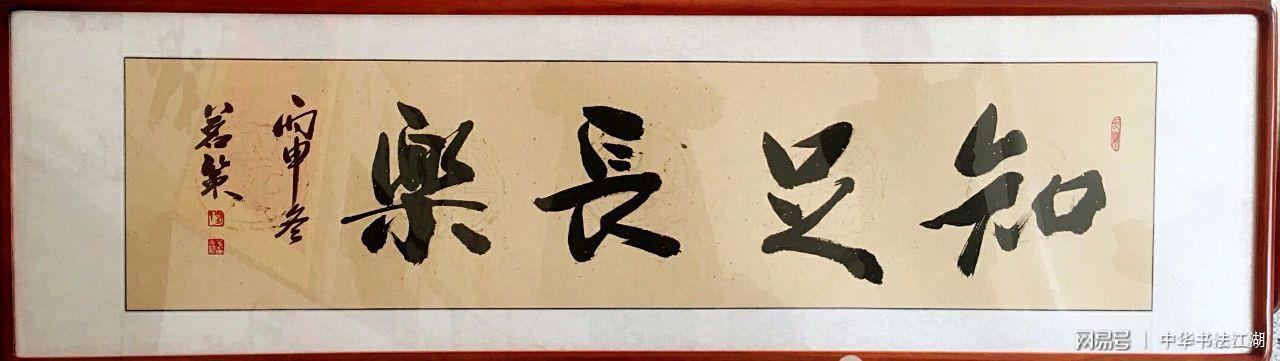 知足長樂
丙申冬
茗策
网易号 | 中华书法江湖